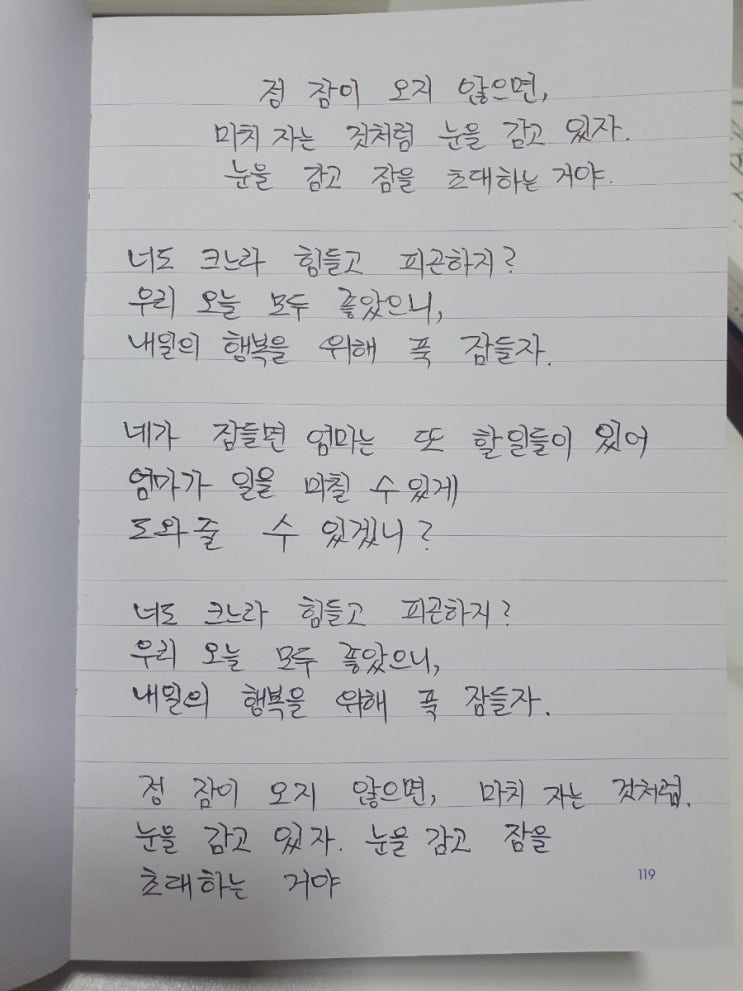 정 잠이 오지 않으면,
마치 자는 것처럼 눈을 감고 있자.
눈을 감고 잠을 초대하는 거야.
너도 크느라 힘들고 피곤하지?
우리 오늘 모두 좋았으니,
내일의 행복을 위해 푹 잠들자.
네가 잠들면 엄마는 또 할일들이 있어
엄마가 일을 마칠 수 있게
도와줄 수 있겠니?
너도 크느라 힘들고 피곤하지?
우리 오늘 모두 좋았으니,
내일의 행복을 위해 푹 잠들자.
정 잠이 오지 않으면, 마치 자는 것처럼.
눈을 감고 있자. 눈을 감고 잠을
초대하는 거야
119